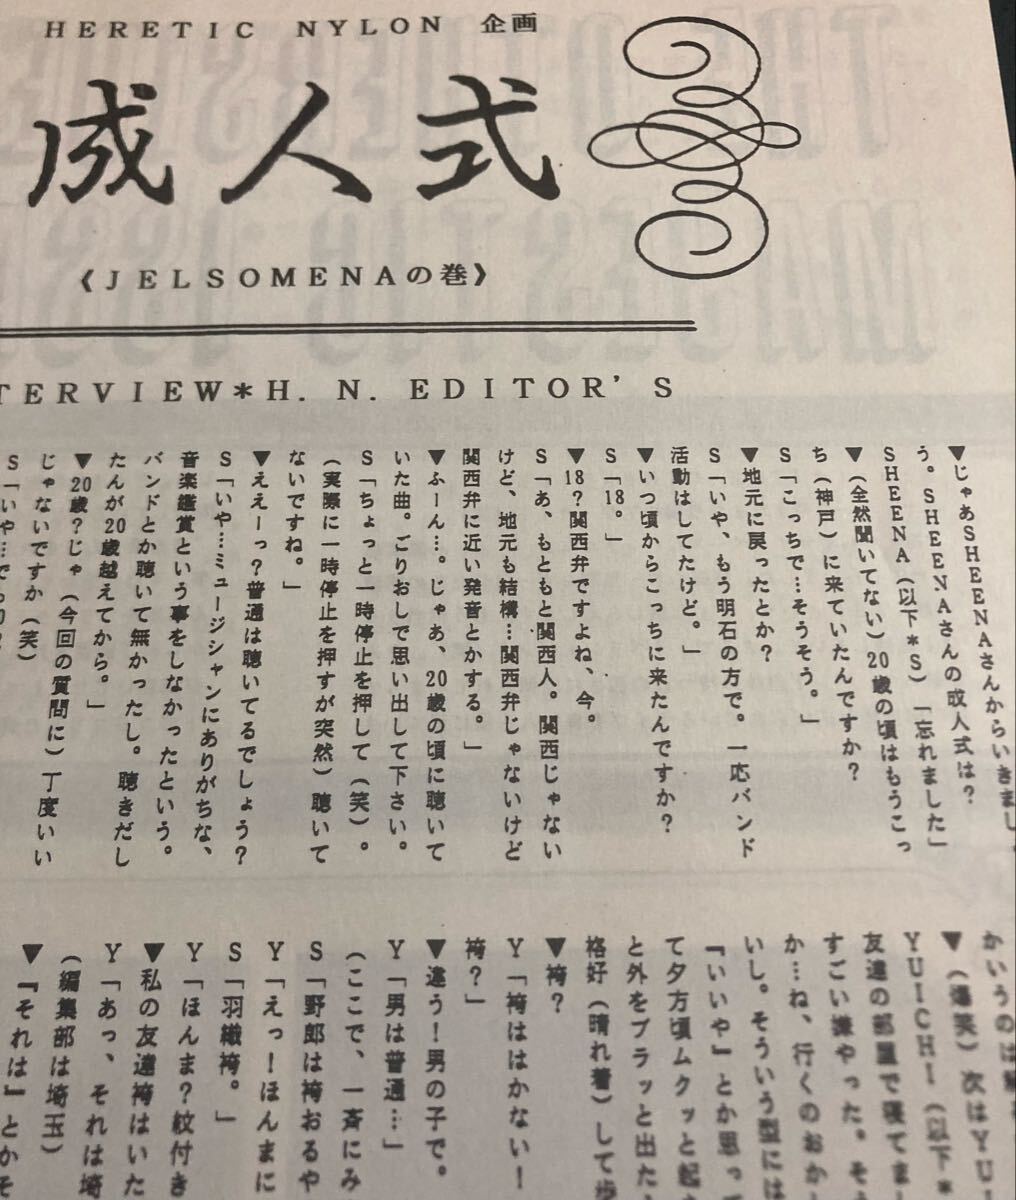 HERETIC NYLON 企画
成人式
《JELSOMENAの巻》
TERVIEW*H. N. EDITOR'S
▼じゃあSHEENAさんからいきまし
う。SHEENAさんの成人式は?
SHEENA(以下*S)「忘れました」
▼(全然聞いてない)20歳の頃はもうこっ
ち(神戸)に来ていたんですか?
S「こっちで…そうそう。」
▼地元に戻ったとか?
S「いや、もう明石の方で。一応バンド
活動はしてたけど。」
▼いつ頃からこっちに来たんですか?
S「18。」
▼18?関西弁ですよね、今。
S「あ、もともと関西人。関西じゃない
けど、地元も結構…関西弁じゃないけど
関西弁に近い発音とかする。」
▼ふーん…。じゃあ、20歳の頃に聴いて
いた曲。ごりおしで思い出して下さい。
S「ちょっと一時停止を押して(笑)。
(実際に一時停止を押すが突然)聴いて
ないですね。」
▼ええーっ?普通は聴いてるでしょう?
S「いや…ミュージシャンにありがちな、
音楽鑑賞という事をしなかったという。
バンドとか聴いて無かったし。聴きだし
たんが20歳越えてから。」
▼20歳?じゃ(今回の質問に)丁度いい
じゃないですか(笑)
S「いや…
かいうのは
▼(爆笑)次はYU
YUICHI(以下*
友達の部屋で寝てま
すごい嫌やった。そ
か…ね、行くのおか
いし。そういう型には
『いいや』とか思っ
て夕方頃ムクッと起
と外をブラッと出た
格好(晴れ着)して歩
▼袴?
Y「袴ははかない!
袴?」
▼違う!男の子で。
Y「男は普通…」
(ここで、一斉にみ
S「野郎は袴おるや
Y「えっ!ほんまに
S「羽織袴。」
Y「ほんま?紋付き
▼私の友達袴はいた
Y「あっ、それは埼
(編集部は埼玉)
▼『それは』とか